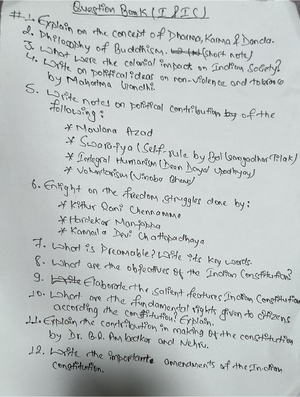 Question Bank (I & I C)
# 1. Explain on the concept of Dharma, Karma & Danda.
2. Philosophy of Buddhism. (short note)
3. What were the colonial impact on Indian Society?
4. Write on political ideas on non-violence and tolerance
by Mahatma Gandhi.
5. Write notes on political contribution by of the
following:
* Moulana Azad
* Swarajya (Self-rule by Bal Gangadhar Tilak)
* Integral Humanism (Deen Dayal Upadhyay)
* (Vinoba Bhave)
6. Enlight on the freedom struggles done by:
* Kittur Rani Chennamma
* Hardekar Manjappa
* Kamala Devi Chattopadhaya
7. What is Preamable? Write its key words.
8. What are the objectives of the Indian Constitution?
9. Elaborate the salient features Indian Constitution
10. What are the fundamental rights given to citizens
according the constitution? Explain.
11. Explain the contribution in making of the constitution
by Dr. B.R. Ambedkar and Nehru.
12. Write the important amendments of the Indian
Constitution.